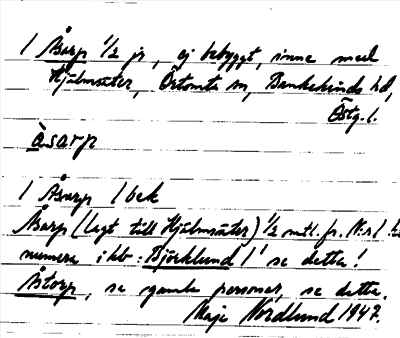 1 Åsarp 1/2 jr, ej bebyggt, inne med
Hjälmsäter, Örtomta sn, Bankekinds hd,
Östg. l.
àsarp
1 Åsarp 1 bek
Åsarp (lagt till Hjälmsäter) 1/2 mtl. fr. N:r 1
numera i kb: Björklund 1! se detta!
Åstorp, se gamla personer, se detta.
Maja Nordlund 1947.